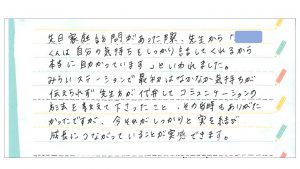 先日家庭訪問があった際、先生から「
くんは自分の気持ちをしっかり話してくれるから
本当に助かっています」といわれました。
みらいステーションで最初はなかなか気持ちが
伝えられず先生方が代弁してコミュニケーションの
方法を教えて下さったこと、その当時もありがた
かったですが、今それがしっかりと実を結び
成長につながっていることが実感できます。